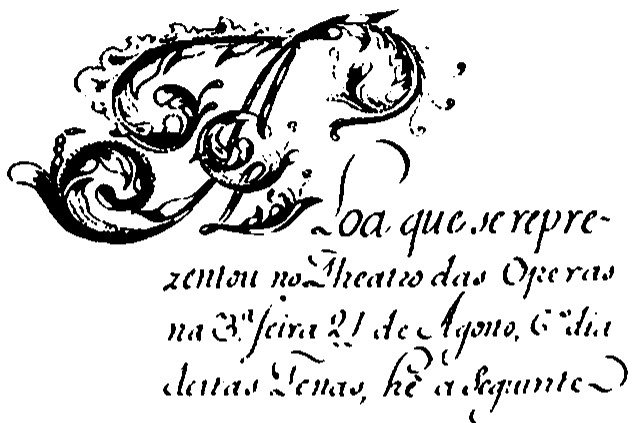 A Loa que se repre-
zentou no Theatro das Operas
na 3.ª feira 21 de Agosto, 6.º dia
destas Festas, hé a Seguinte